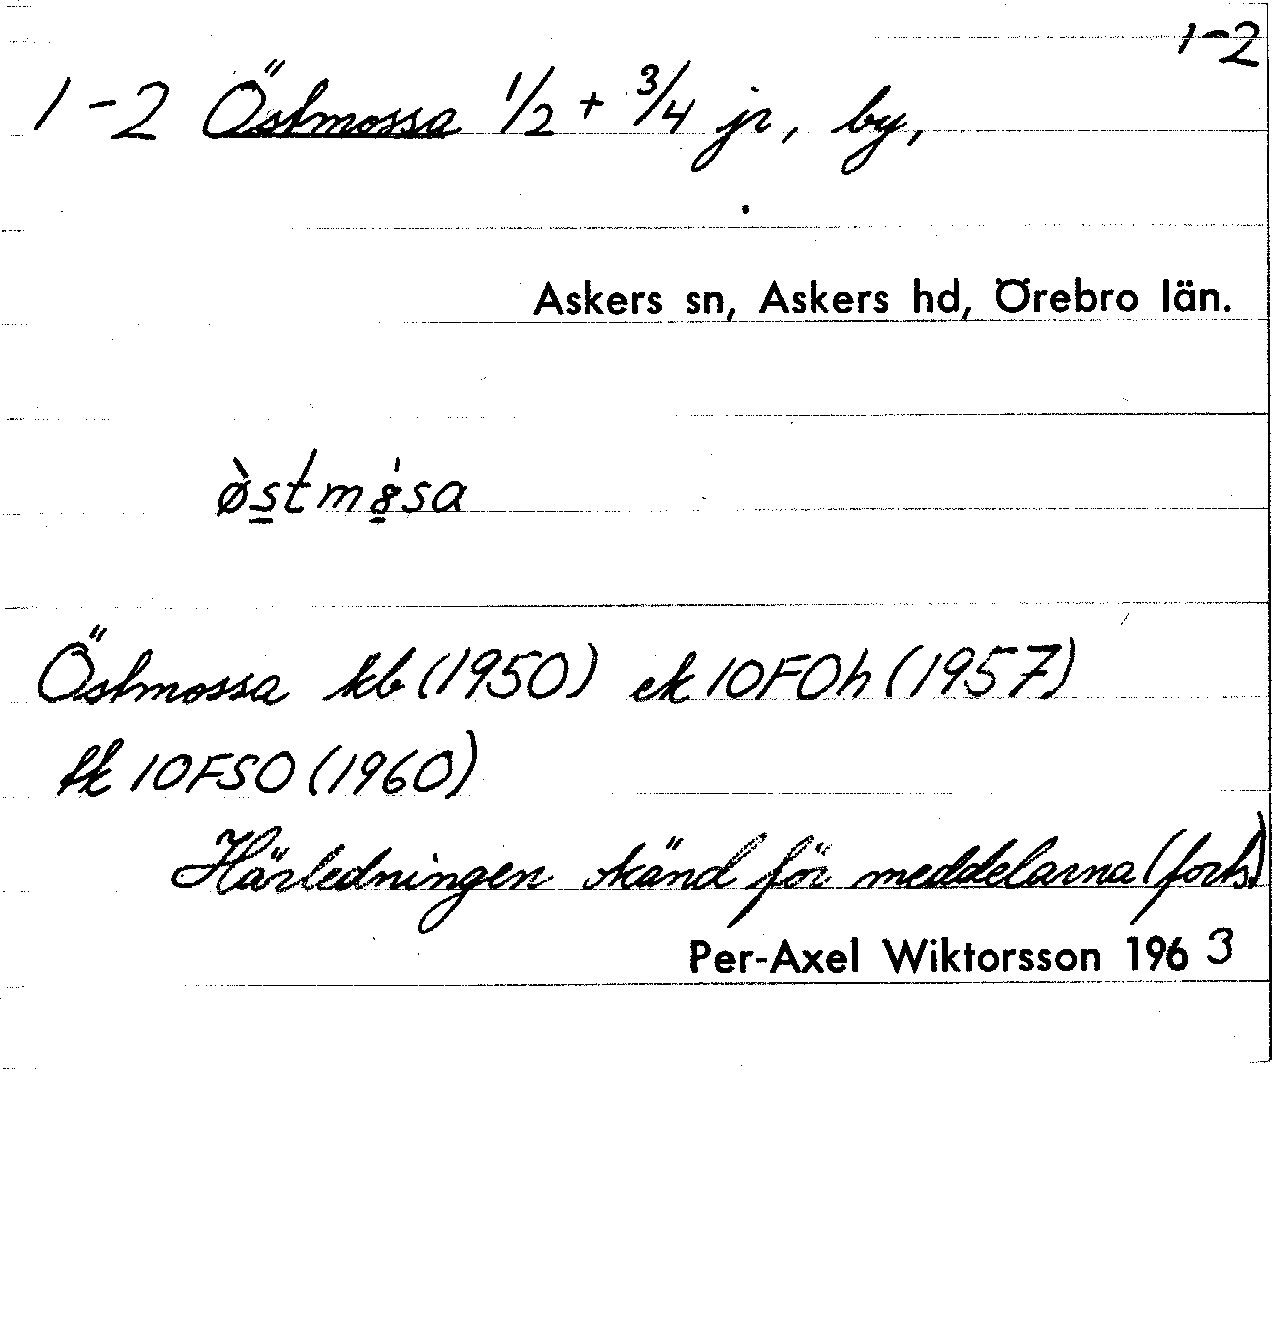 1-2
1-2 Östmossa 1/2 + 3/4 jr, by,
Askers sn, Askers hd, Örebro län.
Östmossa kb (1950) ek 10F0h (1957)
fk 10FSO (1960)
Härledningen okänd för meddelarna (forts)
Per-Axel Wiktorsson 1963